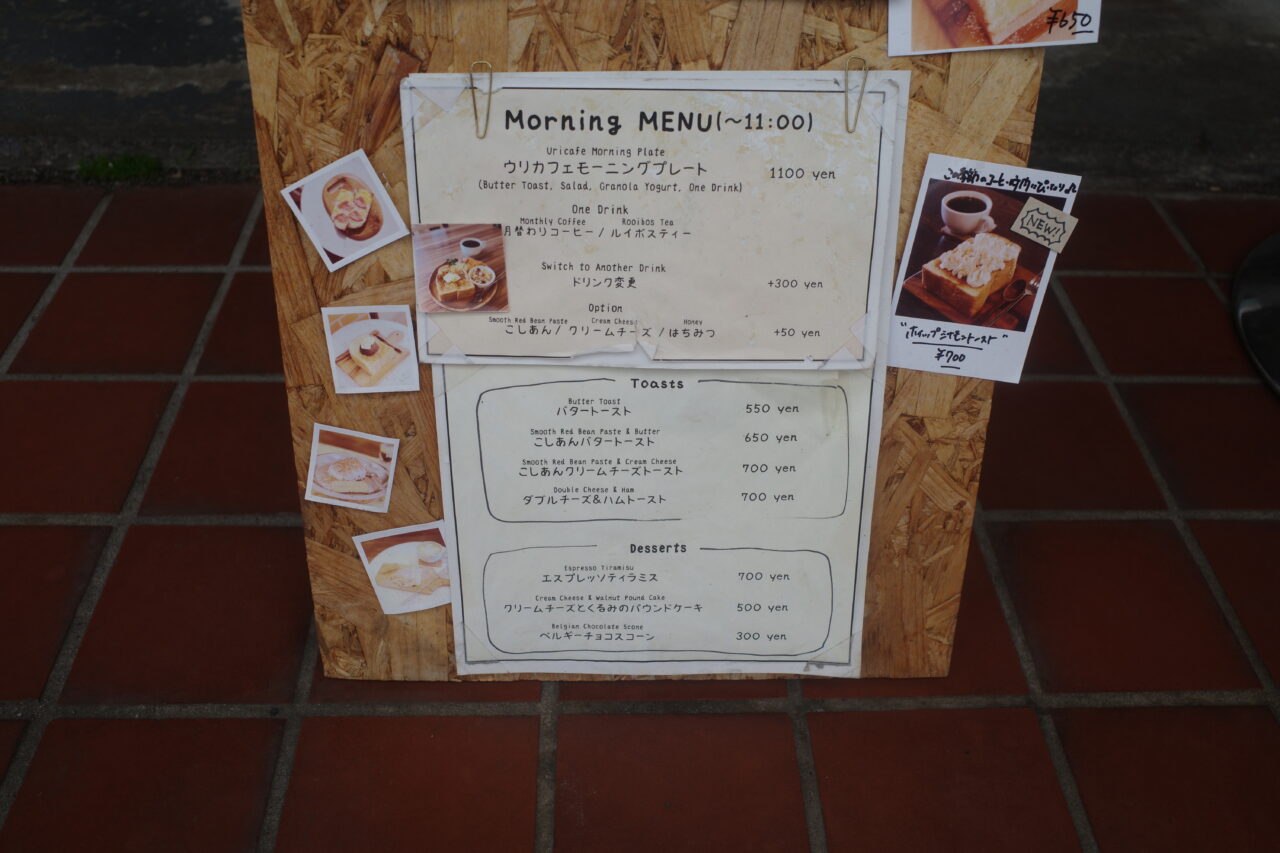 ¥650
Morning MENU(〜11:00)
Uricafe Morning Plate
ウリカフェモーニングプレート 1100 yen
(Butter Toast, Salad, Granola Yogurt, One Drink)
One Drink
Monthly Coffee Rooibos Tea
月替わりコーヒー / ルイボスティー
Switch to Another Drink
ドリンク変更 +300 yen
Option
Smooth Red Bean Paste Cream Cheese Honey
こしあん / クリームチーズ / はちみつ +50 yen
Toasts
Butter Toast
バタートースト 550 yen
Smooth Red Bean Paste & Butter
こしあんバタートースト 650 yen
Smooth Red Bean Paste & Cream Cheese
こしあんクリームチーズトースト 700 yen
Double Cheese & Ham
ダブルチーズ&ハムトースト 700 yen
Desserts
Espresso Tiramisu
エスプレッソティラミス 700 yen
Cream Cheese & Walnut Pound Cake
クリームチーズとくるみのパウンドケーキ 500 yen
Belgian Chocolate Scone
ベルギーチョコスコーン 300 yen
NEW!
¥700